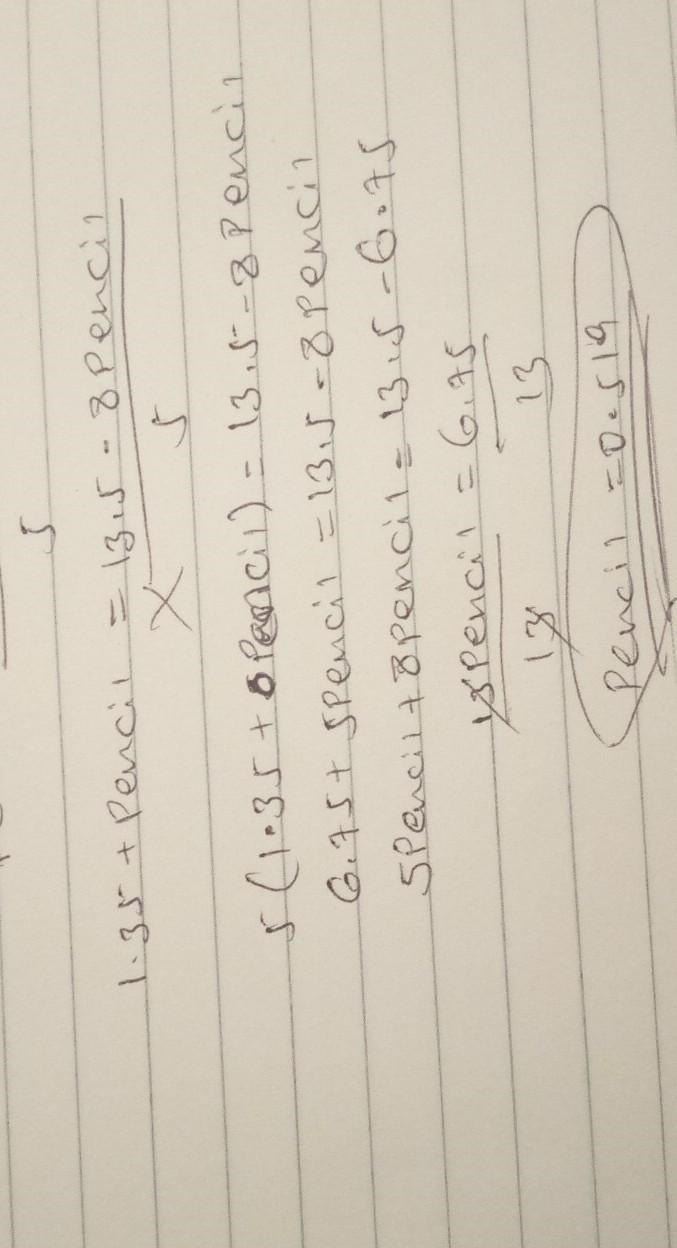 5
1.35 + Pencil = 13.5 - 8Pencil
5
5(1.35 + Pencil) = 13.5 - 8Pencil
6.75 + 5Pencil = 13.5 - 8Pencil
5Pencil + 8Pencil = 13.5 - 6.75
13Pencil = 6.75
13 13
Pencil = 0.519